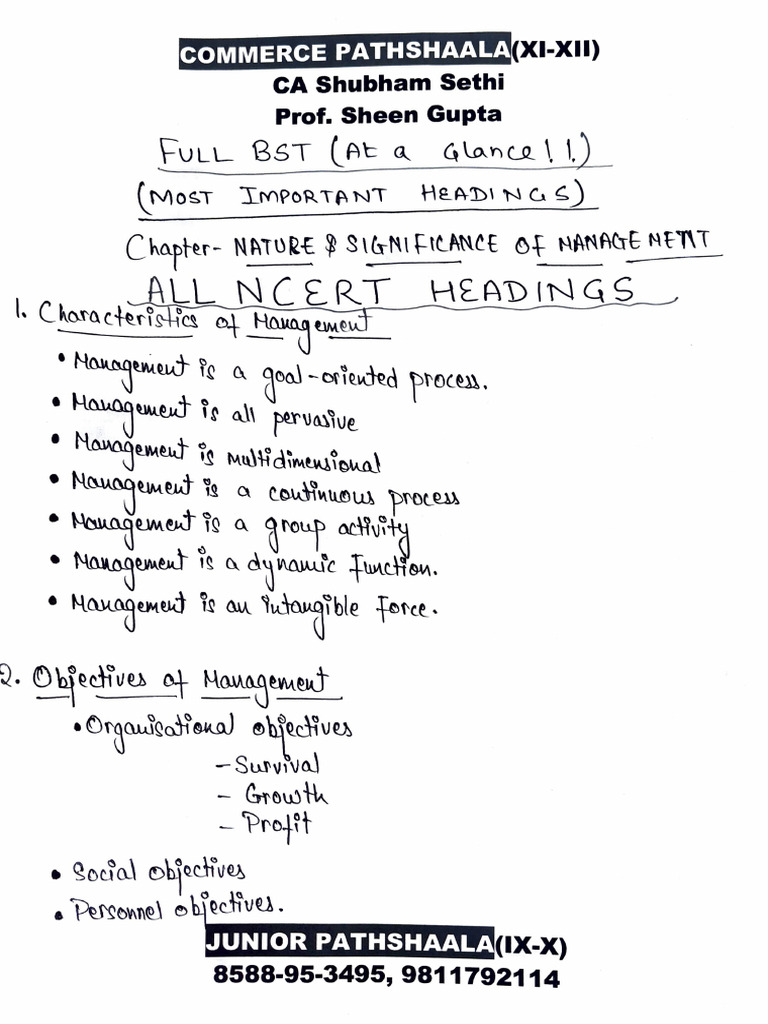 COMMERCE PATHSHAALA(XI-XII)
CA Shubham Sethi
Prof. Sheen Gupta
FULL BST (At a Glance!!)
(MOST IMPORTANT HEADINGS)
Chapter- NATURE & SIGNIFICANCE OF MANAGEMENT
ALL NCERT HEADINGS
1. Characteristics of Management
• Management is a goal-oriented process.
• Management is all pervasive
• Management is multidimensional
• Management is a continuous process
• Management is a group activity
• Management is a dynamic function.
• Management is an intangible force.
2. Objectives of Management
• Organisational objectives
- Survival
- Growth
- Profit
• Social objectives
• Personnel objectives.
JUNIOR PATHSHAALA(IX-X)
8588-95-3495, 9811792114